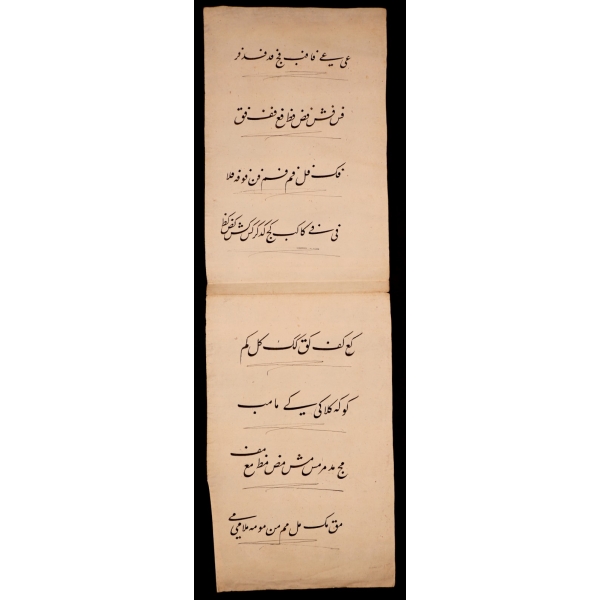 عی یعے فا فب فج فد فذ فر
فس فش فص فط فع فف فق
فک فل فم فسم فن فو فه فلا
فی فے کا کب کج کد کر کس کش کص کط
کع کف کق کک کل کم
کو که کلا کی کے ما مب
مج مد مر مس مش مص مط مع مف
مق مک مل مم من مو مه ملا می مے